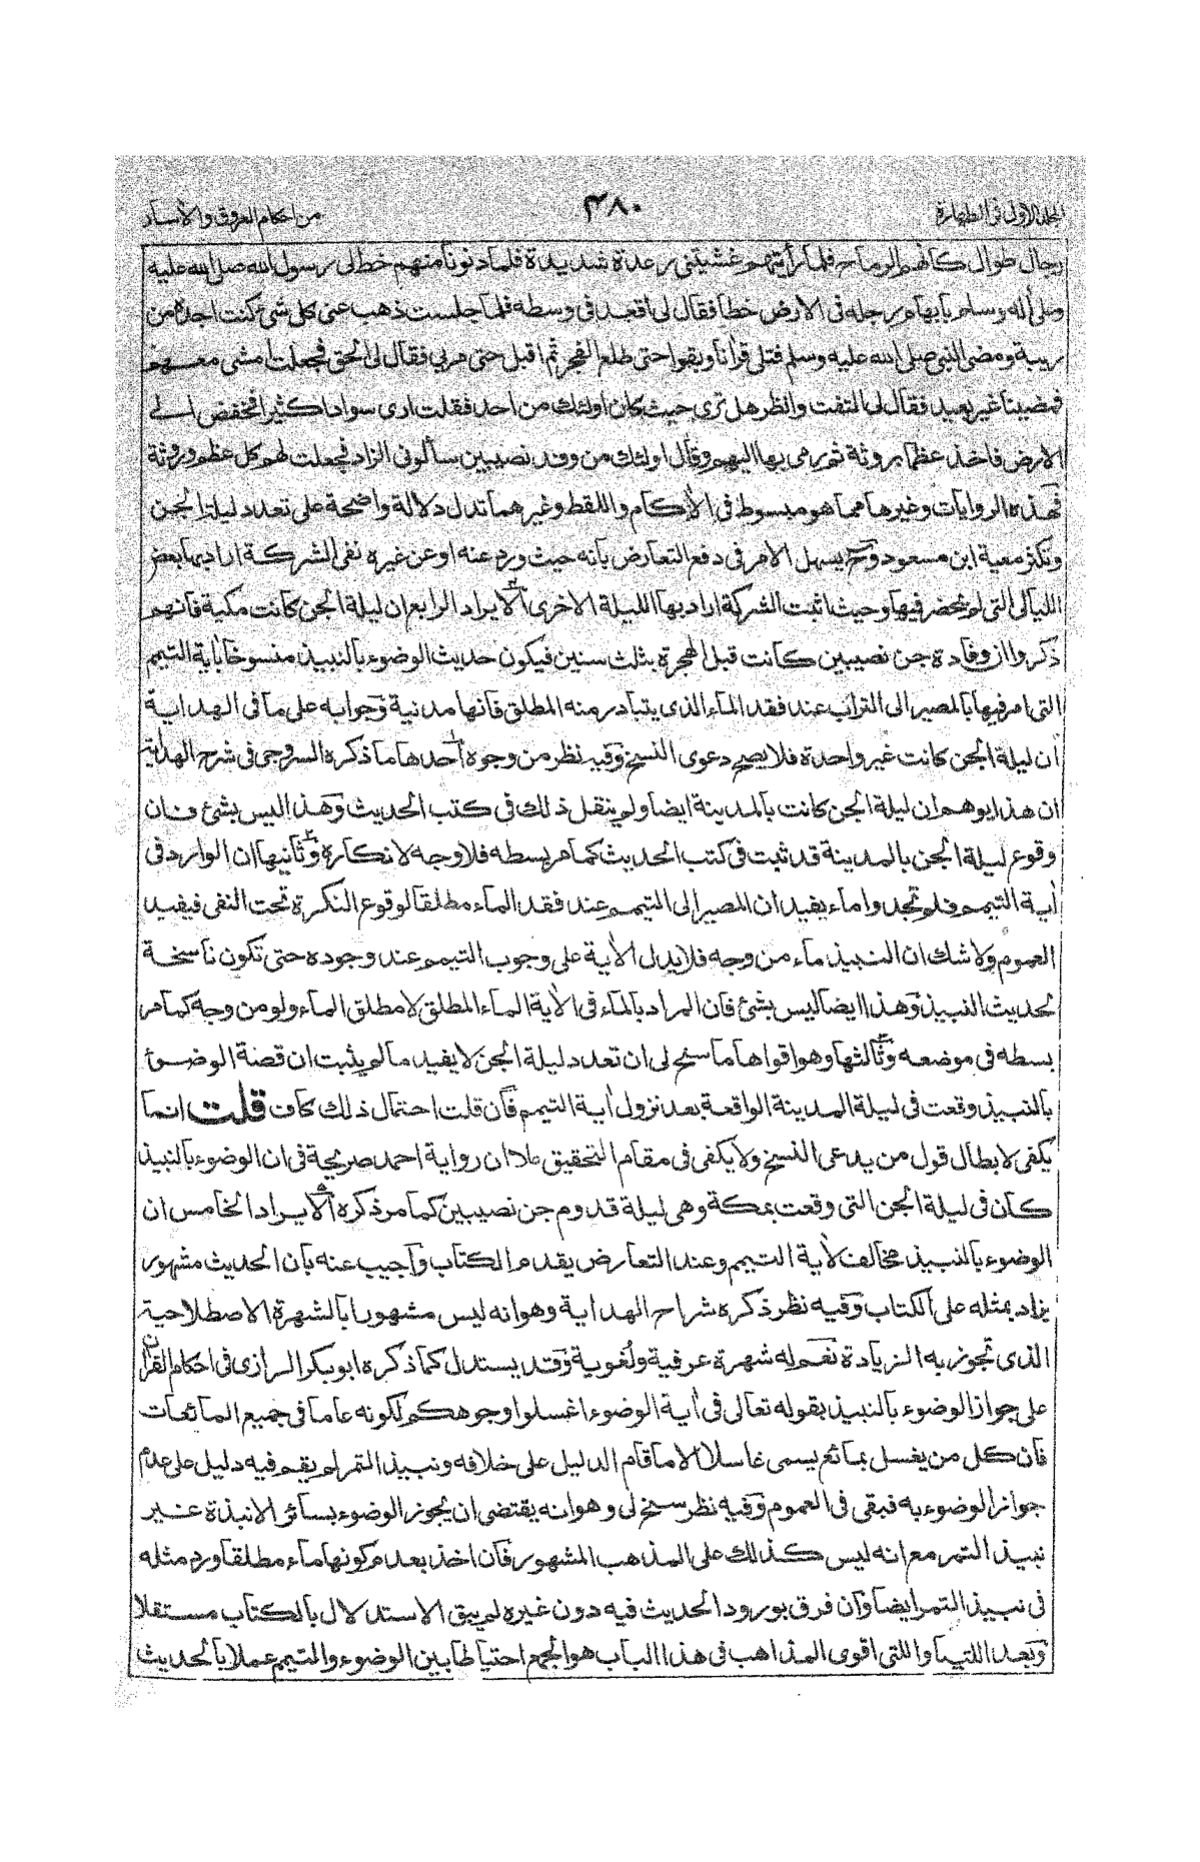 المجلد الاول فى الطهارة
٤٨٠
من احكام العروق والأسار
رجال طوال كأنهم الرماح فلما رأيتهم غشيتنى رعدة شديدة فلما دنونا منهم خط لى رسول الله صلى الله عليه
وعلى أله وسلم بابهام رجله فى الارض خطا فقال لى أقعد فى وسطه فلما جلست ذهب عنى كل شئ كنت اجده من
ريبة ومضى النبى صلى الله عليه وسلم فتلى قرأنا وبقوا حتى طلع الفجر ثم اقبل حتى مر بى فقال لى الحق فجعلت امشى معهم
فمضينا غير بعيد فقال لى التفت وانظر هل ترى حيث كان اولئك من احد فقلت ارى سوادا كثيرا فخفض الى
الارض فاخذ عظما بروثة ثم رمى بها اليهم وقال اولئك من وفد نصيبين سألونى الزاد فجعلت لهم كل عظم وروثة
فهذه الروايات وغيرها مما هو مبسوط فى الأكام واللقط وغيرهما تدل دلالة واضحة على تعدد ليلة الجن
وتكثر معية ابن مسعود وح يسهل الامر فى دفع التعارض بانه حيث ورد عنه او عن غيره نفى الشركة اراد بها بعض
الليالى التى لم يحضر فيها وحيث اثبت الشركة اراد بها الليلة الاخرى ألايراد الرابع ان ليلة الجن كانت مكية فانهم
ذكروا ان وفادة جن نصيبين كانت قبل الهجرة بثلث سنين فيكون حديث الوضوء بالنبيذ منسوخا بأية التيمم
التى امر فيها بالمصير الى التراب عند فقد الماء الذى يتبادر منه المطلق فانها مدنية وجوابه على ما فى الهداية
ان ليلة الجن كانت غير واحدة فلا يصح دعوى النسخ وفيه نظر من وجوه أحدها ما ذكره السروجى فى شرح الهداية
ان هذا يوهم ان ليلة الجن كانت بالمدينة ايضا ولم ينقل ذلك فى كتب الحديث وهذا ليس بشئ فان
وقوع ليلة الجن بالمدينة قد ثبت فى كتب الحديث كما مر بسطه فلا وجه لانكاره وثانيها ان الوارد فى
أية التيمم فلم تجدوا ماء يفيد ان المصير الى التيمم عند فقد الماء مطلقا لوقوع النكرة تحت النفى فيفيد
العموم ولا شك ان النبيذ ماء من وجه فلا يدل الأية على وجوب التيمم عند وجوده حتى تكون ناسخة
لحديث النبيذ وهذا ايضا ليس بشئ فان المراد بالماء فى الأية الماء المطلق لا مطلق الماء ولو من وجه كما مر
بسطه فى موضعه وثالثها وهو اقواها ما سنح لى ان تعدد ليلة الجن لا يفيد ما لم يثبت ان قصة الوضوء
بالنبيذ وقعت فى ليلة المدينة الواقعة بعد نزول أية التيمم فأن قلت احتمال ذلك كاف قلت انما
يكفى لابطال قول من يدعى النسخ ولا يكفى فى مقام التحقيق علا ان رواية احمد صريحة فى ان الوضوء بالنبيذ
كان فى ليلة الجن التى وقعت بمكة وهى ليلة قدوم جن نصيبين كما مر ذكره ألايراد الخامس ان
الوضوء بالنبيذ مخالف لأية التيمم وعند التعارض يقدم الكتاب وأجيب عنه بأن الحديث مشهور
يزاد بمثله على الكتاب وفيه نظر ذكره شراح الهداية وهو انه ليس مشهورا بالشهرة الاصطلاحية
الذى تجوز به الزيادة نعم له شهرة عرفية ولغوية وقد يستدل كما ذكره ابو بكر الرازى فى احكام القرأن
على جواز الوضوء بالنبيذ بقوله تعالى فى أية الوضوء اغسلوا وجوهكم لكونه عاما فى جميع المائعات
فأن كل من يغسل بمائع يسمى غاسلا الا ما قام الدليل على خلافه ونبيذ التمر لم يقم فيه دليل على عدم
جواز الوضوء به فبقى فى العموم وفيه نظر سنح لى وهو انه يقتضى ان يجوز الوضوء بسائر الانبذة غير
نبيذ التمر مع انه ليس كذلك على المذهب المشهور فأن اخذ بعدم كونها ماء مطلقا ورد مثله
فى نبيذ التمر ايضا وأن فرق بورود الحديث فيه دون غيره لم يبق الاستدلال بالكتاب مستقلا
وبعد اللتيا واللتى اقوى المذاهب فى هذا الباب هو الجمع احتياطا بين الوضوء والتيمم عملا بالحديث